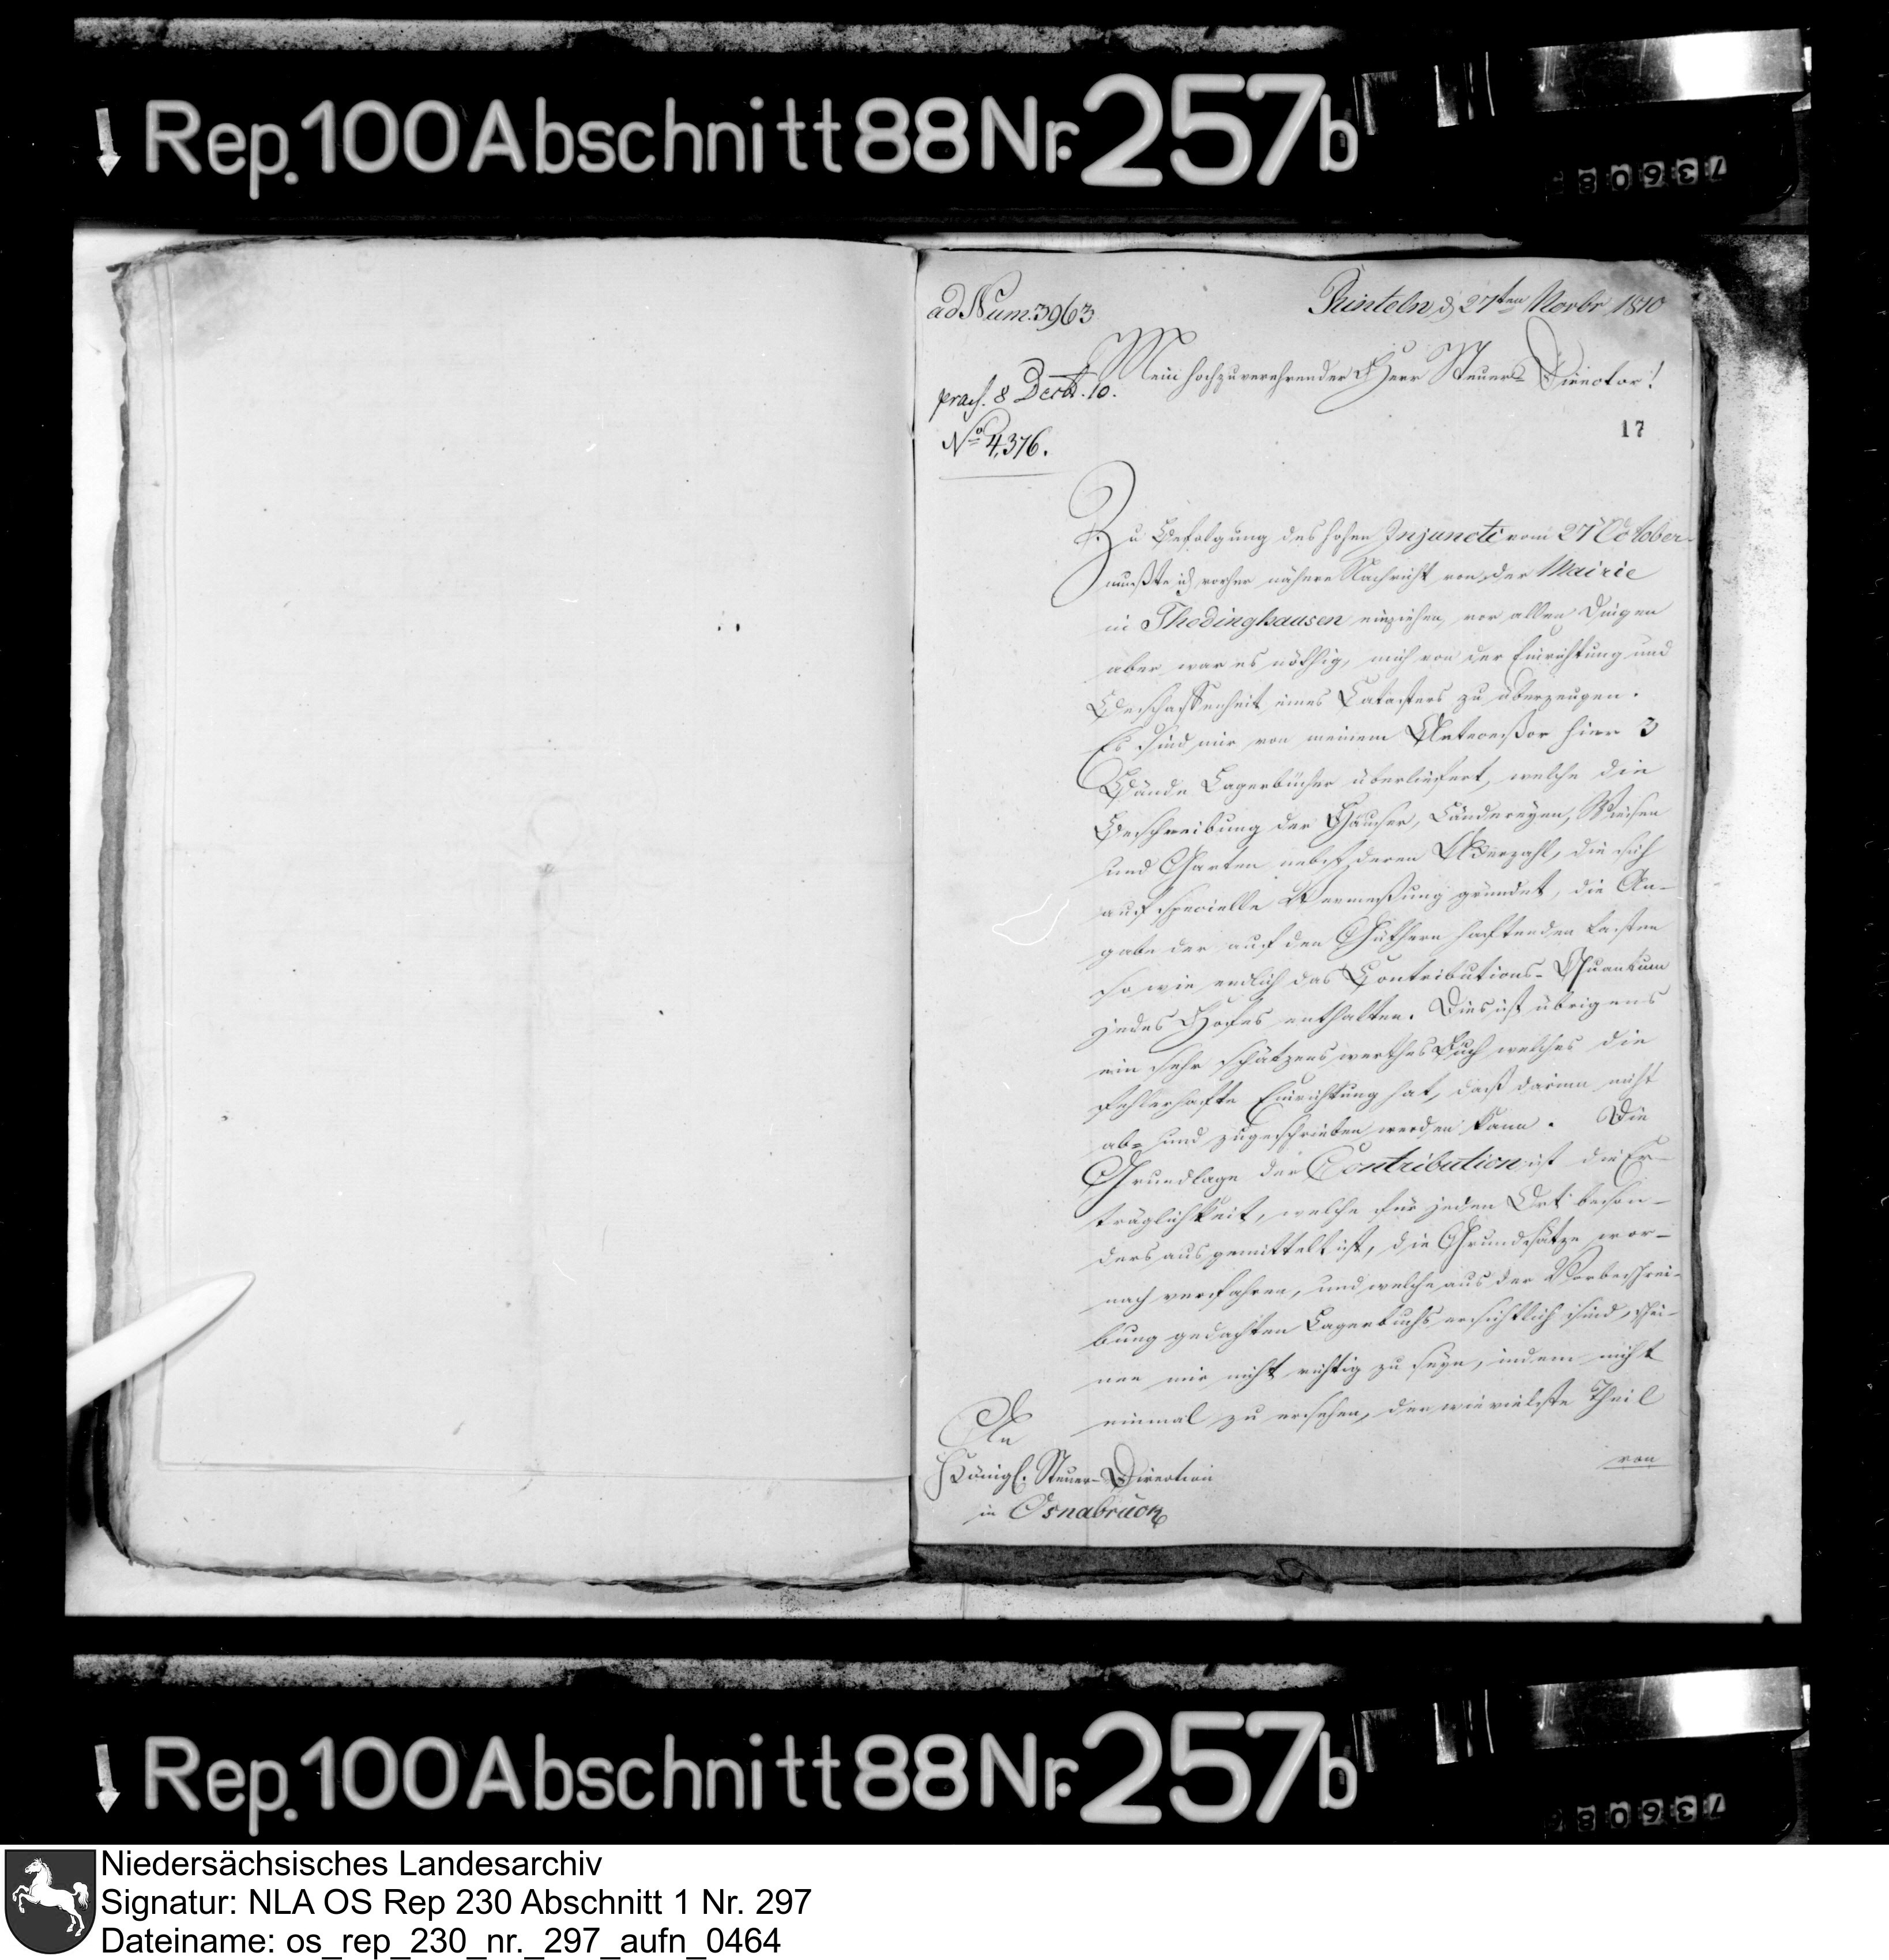 Rep. 100 Abschnitt 88 Nr. 257b
73608
ad Num. 3963
Rinteln d 27ten Novbr 1810
Mein hochzuverehrender Herr Steuer-Director!
praes. 8 Decbr. 10.
17
No 4,376.
Zu Befolgung des hohen Injuncti vom 27 October
mußte ich vorher nähere Nachricht von der Mairie
in Thedinghausen einziehen, vor allen Dingen
aber war es nöthig, mich von der Einrichtung und
Beschaffenheit eines Catasters zu überzeugen.
Es sind mir von meinem Antecessor hier 3
Bände Lagerbücher überliefert, welche die
Beschreibung der Häuser, Ländereyen, Wiesen
und Garten nebst deren Ackerzahl, die sich
auf specielle Vermeßung gründet, die An-
gabe der auf den Güthern haftenden Lasten
so wie endlich das Contributions-Quantum
jedes Hofes enthalten. Dies ist übrigens
ein sehr schätzenswerthes Buch welches die
fehlerhafte Einrichtung hat, daß darinn nicht
ab- und zugeschrieben werden kann. Die
Grundlage der Contribution ist die Er-
träglichkeit, welche für jeden Ort beson-
ders ausgemittelt ist, die Grundsätze wor-
nach verfahren, und welche aus der Vorbeschrei-
bung gedachten Lagerbuchs ersichtlich sind, schei-
nen mir nicht richtig zu seyn, indem nicht
einmal zu ersehen, der wievielste Theil
von
An
Königl. Steuer-Direction
in Osnabrück
Rep. 100 Abschnitt 88 Nr. 257b
73608
Niedersächsisches Landesarchiv
Signatur: NLA OS Rep 230 Abschnitt 1 Nr. 297
Dateiname: os_rep_230_nr._297_aufn_0464